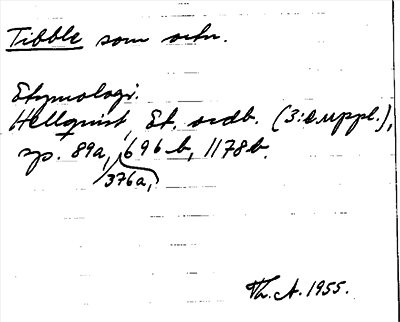 Tibble som ortn.
Etymologi.
Hellquist, Et. ordb. (3:e uppl.),
sp. 89a, 696b, 1178b.
376a,
Th. A. 1955.